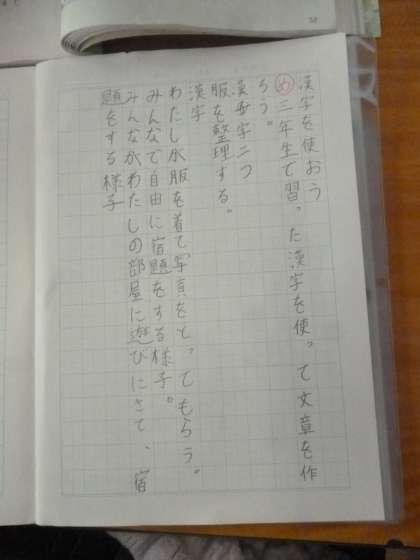 漢字を使おう
め 三年生で習った漢字を使って文章を作
ろう。
漢字二つ
服を整理する。
漢字
わたし水服を着て写真をとってもらう。
みんなで自由に宿題をする様子。
みんながわたしの部屋に遊びにきて、宿
題をする様子